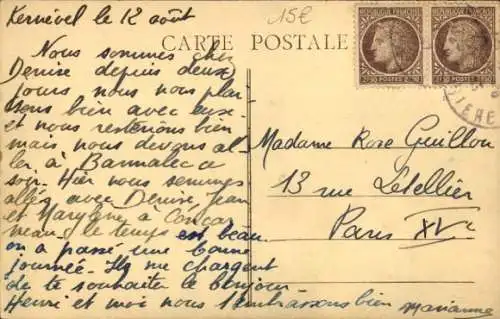 Kernével le 12 août
15€
CARTE POSTALE
Nous sommes chez
Denise depuis deux
jours nous nous plai
sons bien avec eux
et nous resterions bien
mais nous devons al
ler à Bannalec ce
soir. Hier nous sommes
allés avec Denise, Jean
et Maryvonne à Concar
neau. le temps est beau
on a passé une bonne
journée. Ils me chargent
de te souhaiter le bonjour
Henri et moi nous t'embrassons bien Marianne
Madame Rose Guillou
13 rue Létellier
Paris XVe
POSTES
POSTES